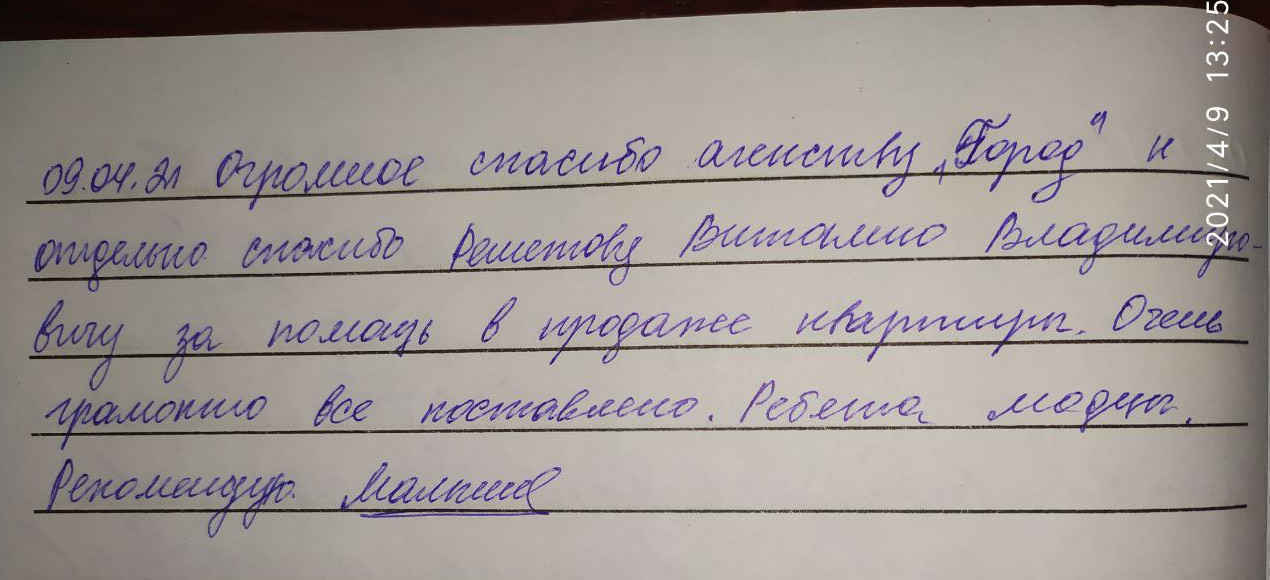 09.04.21 Огромное спасибо агенству „Город" и
отдельно спасибо Решетову Виталию Владимиро-
вичу за помощь в продаже квартиры. Очень
грамотно все поставлено. Ребята модцы.
Рекомендую.
2021/4/9 13:25